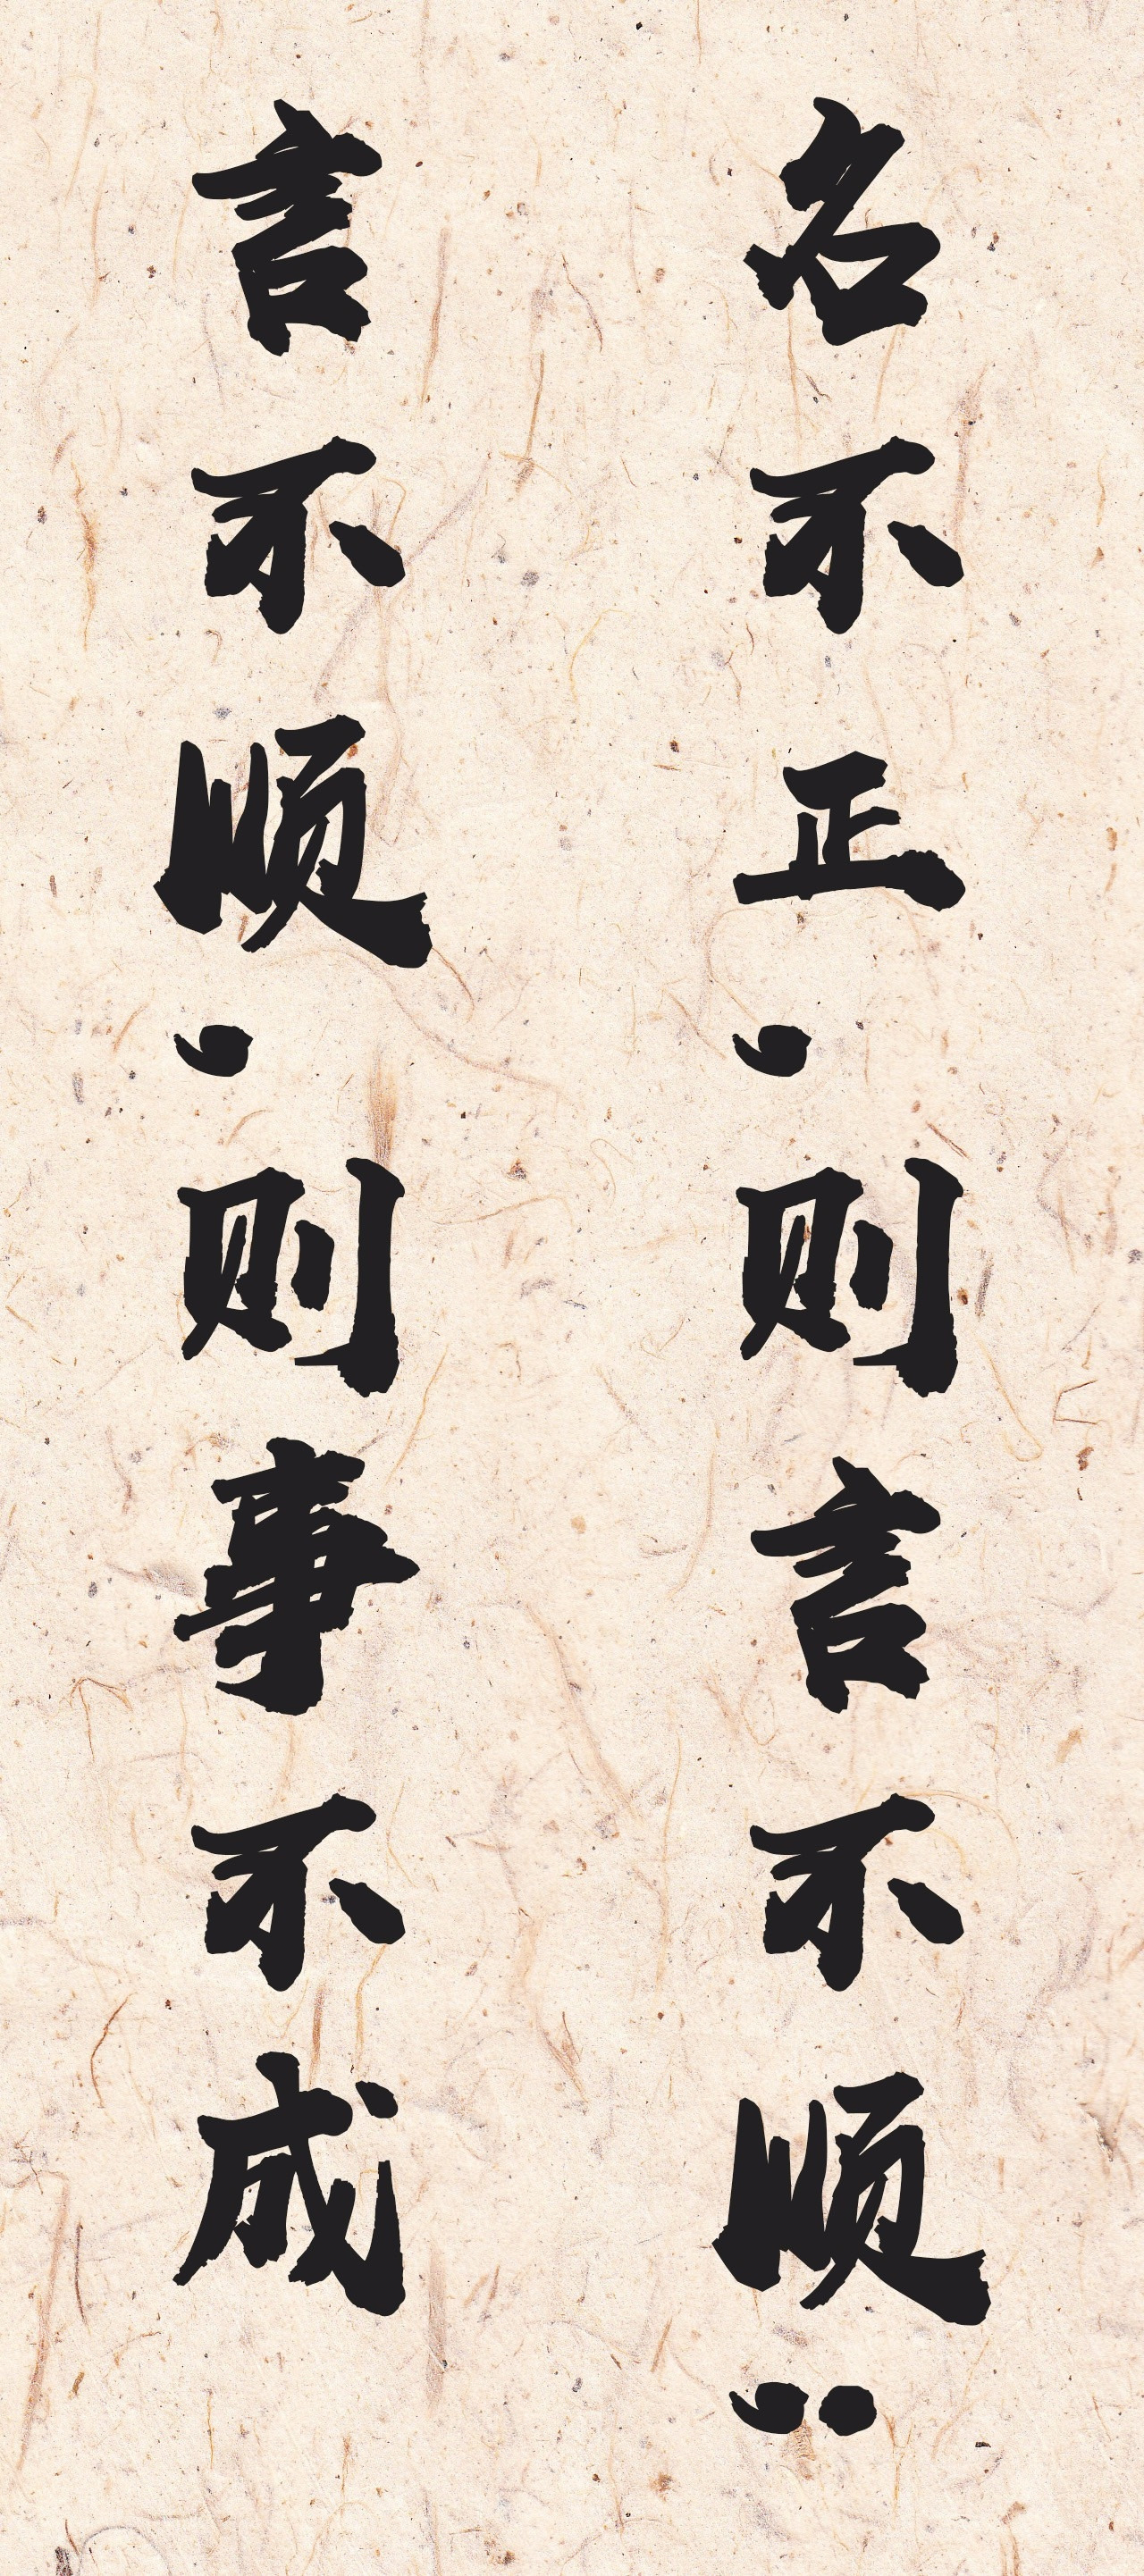 名不正，则言不顺；
言不顺，则事不成